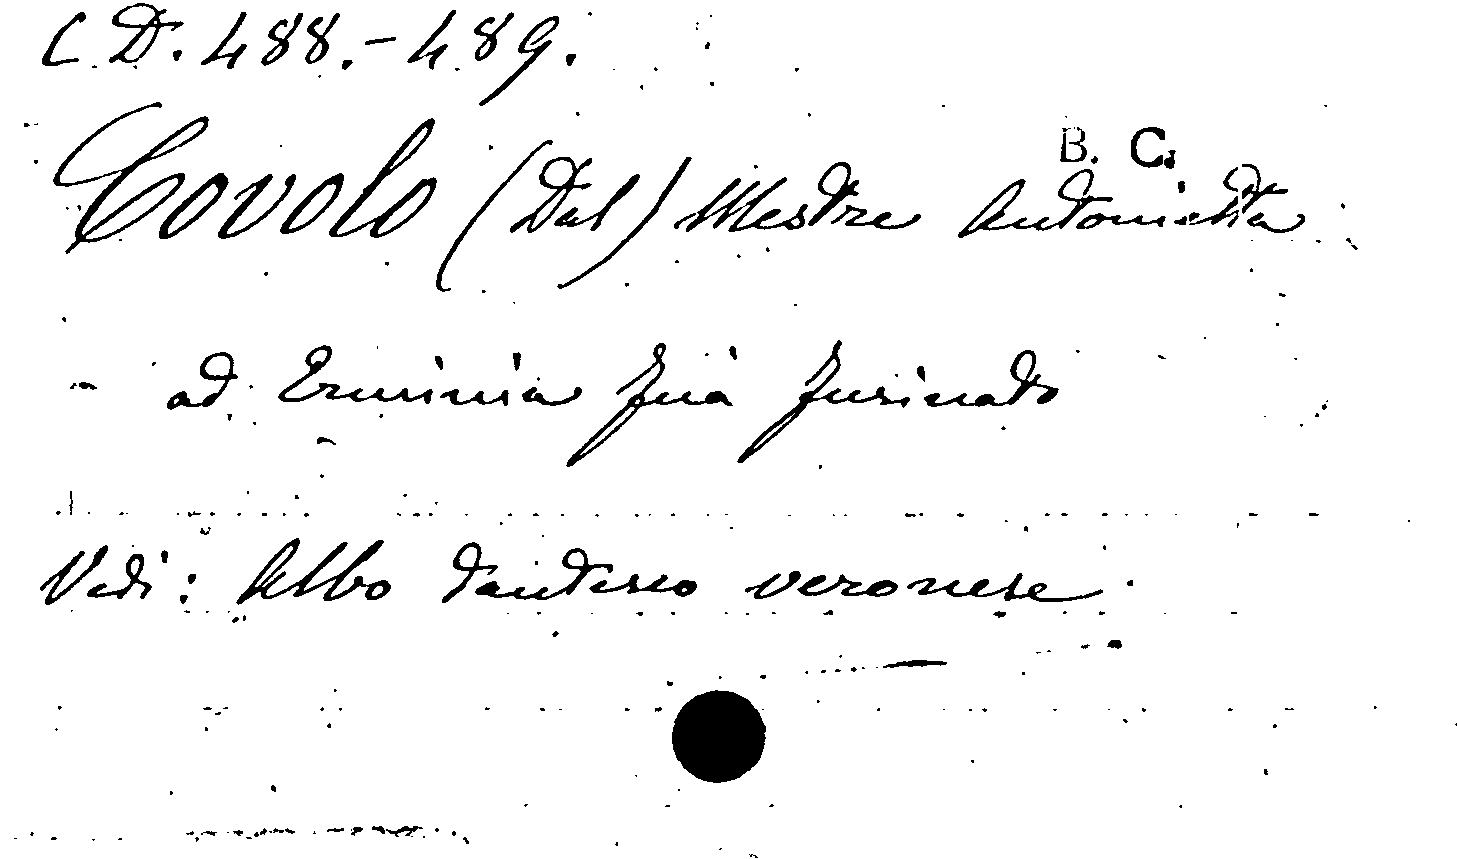 C D. 488.-489.
B. C.
Covolo (Dal) Mestre Antonietta
- ad Erminia Fuà Fusinato
Vedi: Albo dantesco veronese.